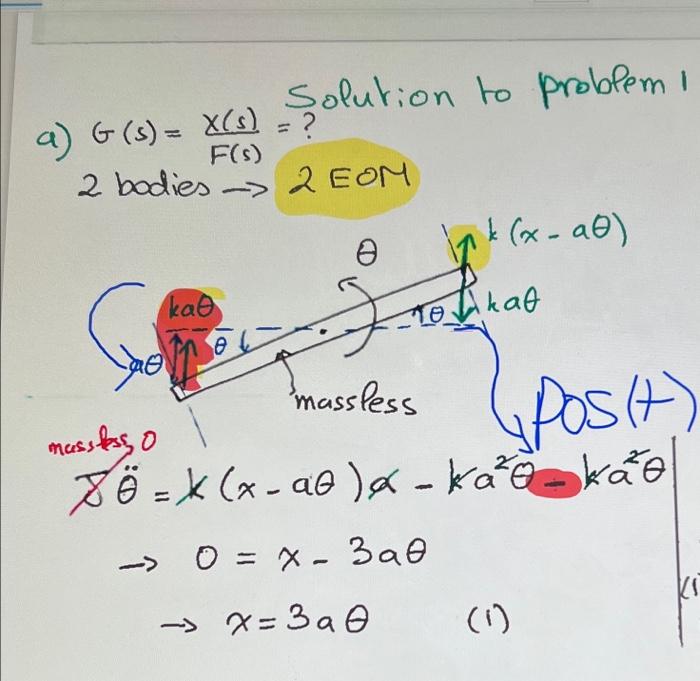 Solution to problem 1
a) G(s) = X(s)/F(s) = ?
2 bodies → 2 EOM
k(x - aθ)
θ
kaθ
θ
θ
kaθ
aθ
massless
POS(+)
massless, 0
J θ̈ = k(x - aθ)a - ka²θ - ka²θ
→ 0 = x - 3aθ
→ x = 3aθ (1)